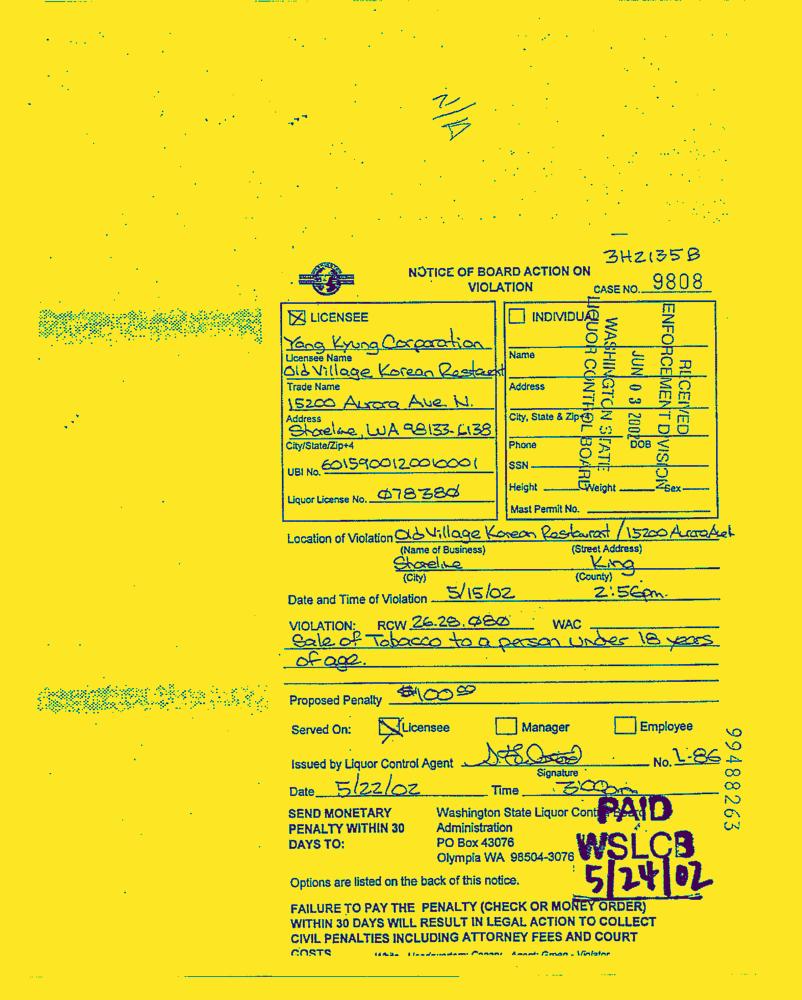 N/A
3H2135B
NOTICE OF BOARD ACTION ON
VIOLATION
CASE NO. 9808
LICENSEE
Yang Kyung Corporation
Licensee Name
Old Village Korean
Trade Name
15200 Aurora Ave N.
Address
Shoreline, WA 98133-6138
City/State/Zip+4
UBI No. 6015900120010001
Liquor License No. 078380
INDIVIDUAL
Name
Address
City, State & Zip+4
Phone DOB
SSN
Height Weight Sex
Mast Permit No.
RECEIVED
ENFORCEMENT DIVISION
JUN 03 2002
WASHINGTON STATE
LIQUOR CONTROL BOARD
Location of Violation Old Village Korean Restaurant / 15200 Aurora
(Name of Business) (Street Address)
Shoreline King
(City) (County)
Date and Time of Violation 5/15/02 2:56pm.
VIOLATION: RCW 26.28.080 WAC
Sale of Tobacco to a person under 18 years
of age.
Proposed Penalty $100 00
Served On: Licensee Manager Employee
Issued by Liquor Control Agent No. L-86
Signature
Date 5/22/02 Time 3:00pm
99488263
SEND MONETARY
PENALTY WITHIN 30
DAYS TO:
Washington State Liquor Control Board
Administration
PO Box 43076
Olympia WA 98504-3076
PAID
WSLCB
5/24/02
Options are listed on the back of this notice.
FAILURE TO PAY THE PENALTY (CHECK OR MONEY ORDER)
WITHIN 30 DAYS WILL RESULT IN LEGAL ACTION TO COLLECT
CIVIL PENALTIES INCLUDING ATTORNEY FEES AND COURT
COSTS